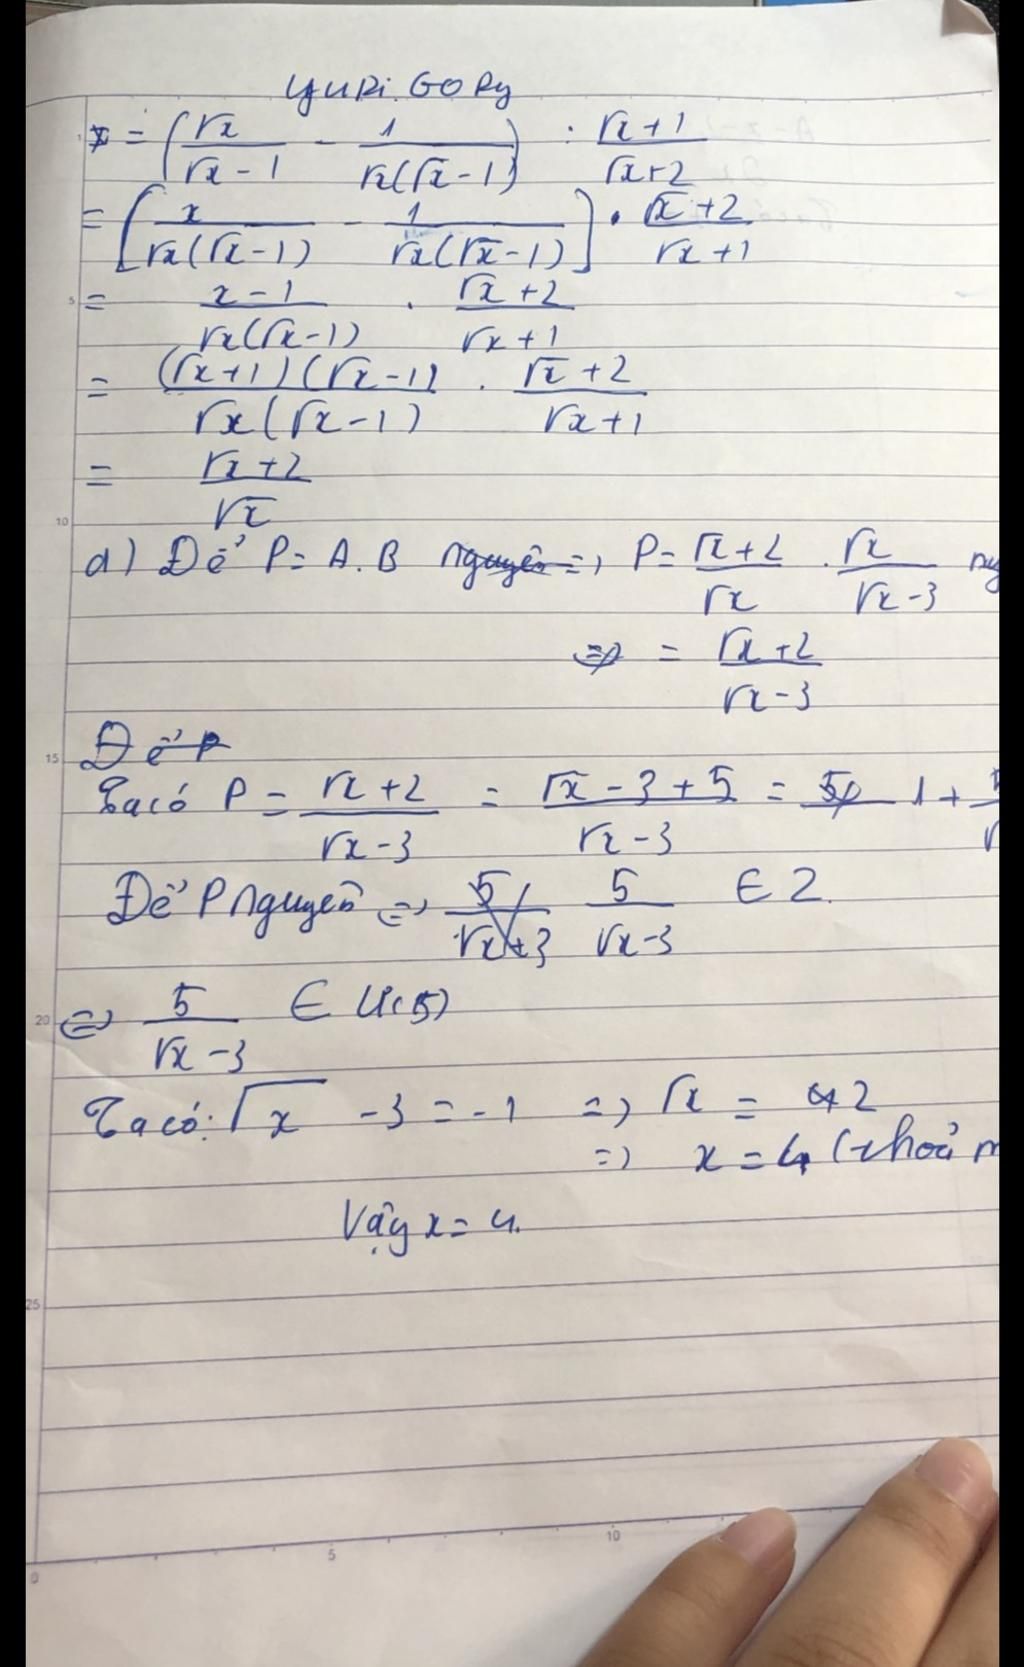 YURI GORy
= (√x/(√x-1) - 1/(√x(√x-1))) : (√x+1)/(√x+2)
= [x/(√x(√x-1)) - 1/(√x(√x-1))] . (√x+2)/(√x+1)
= (x-1)/(√x(√x-1)) . (√x+2)/(√x+1)
= ((√x+1)(√x-1))/(√x(√x-1)) . (√x+2)/(√x+1)
= (√x+2)/√x
d) Để P = A.B nguyên => P = (√x+2)/√x . √x/(√x-3)
=> = (√x+2)/(√x-3)
Để P
Ta có P = (√x+2)/(√x-3) = (√x-3+5)/(√x-3) = 1 +
Để P nguyên => 5/(√x+3) 5/(√x-3) ∈ Z.
=> 5/(√x-3) ∈ Ư(5)
Ta có: √x - 3 = -1 => √x = 2
=> x = 4 (thoả
Vậy x = 4.
1
5
10
15
20
25
0
5
10